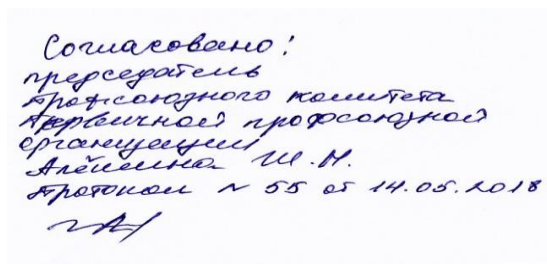 Согласовано!
председатель
Профсоюзного комитета
Первичной профсоюзной
организации
Алёшина Ш.М.
Протокол № 55 от 14.05.2018